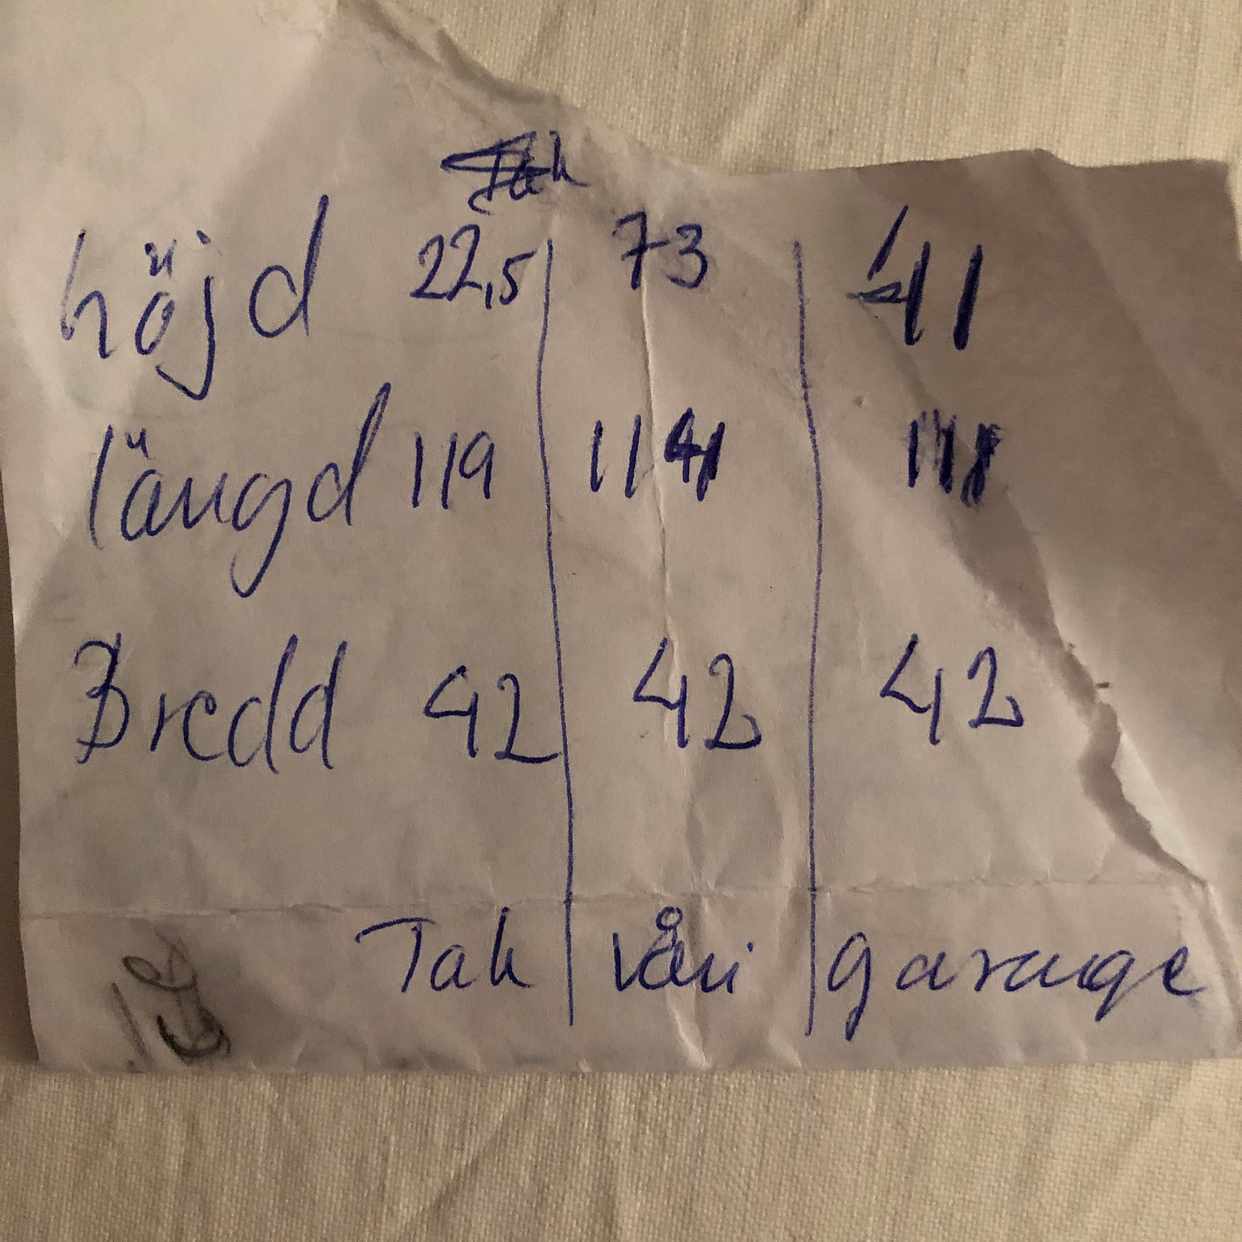 höjd 22,5 73 41
längd 119 114 118
Bredd 42 42 42
Tak våni garauge